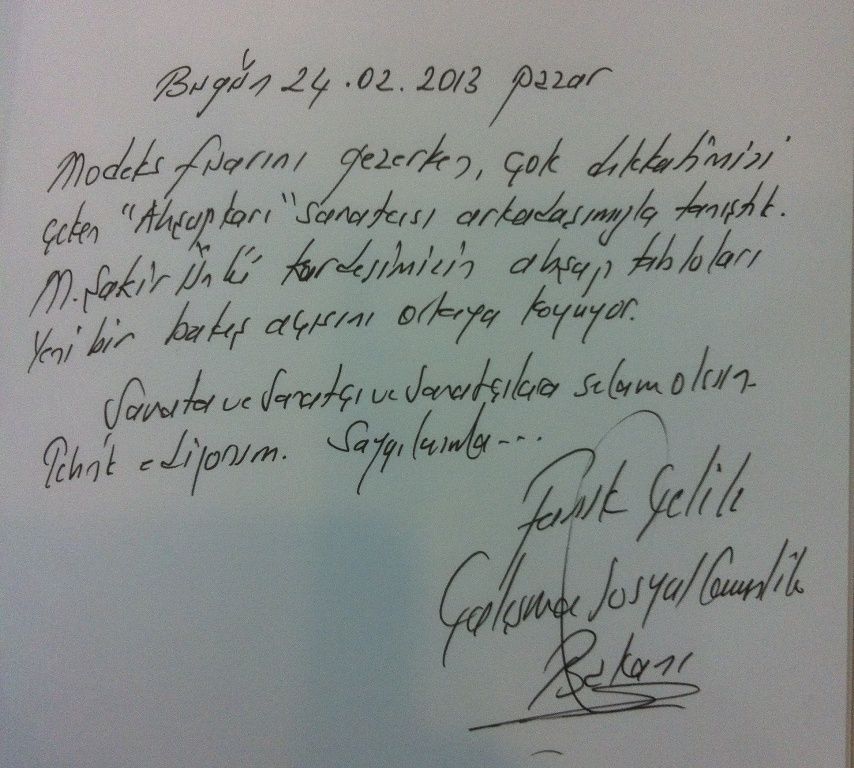 Bugün 24.02.2013 pazar
Modeks fuarını gezerken, çok dikkatimizi
çeken "Ahşapkarı" sanatcısı arkadaşımıyla tanıştık.
M. Şakir Ünlü kardeşimizin ahşap tabloları
Yeni bir bakış açısını ortaya koyuyor.
Sanata ve Sanatçı ve Sanatçılara selam olsun
Tebrik ediyorum. Saygılarımla...
Faruk Çelik
Çalışma Sosyal Güvenlik
Bakanı